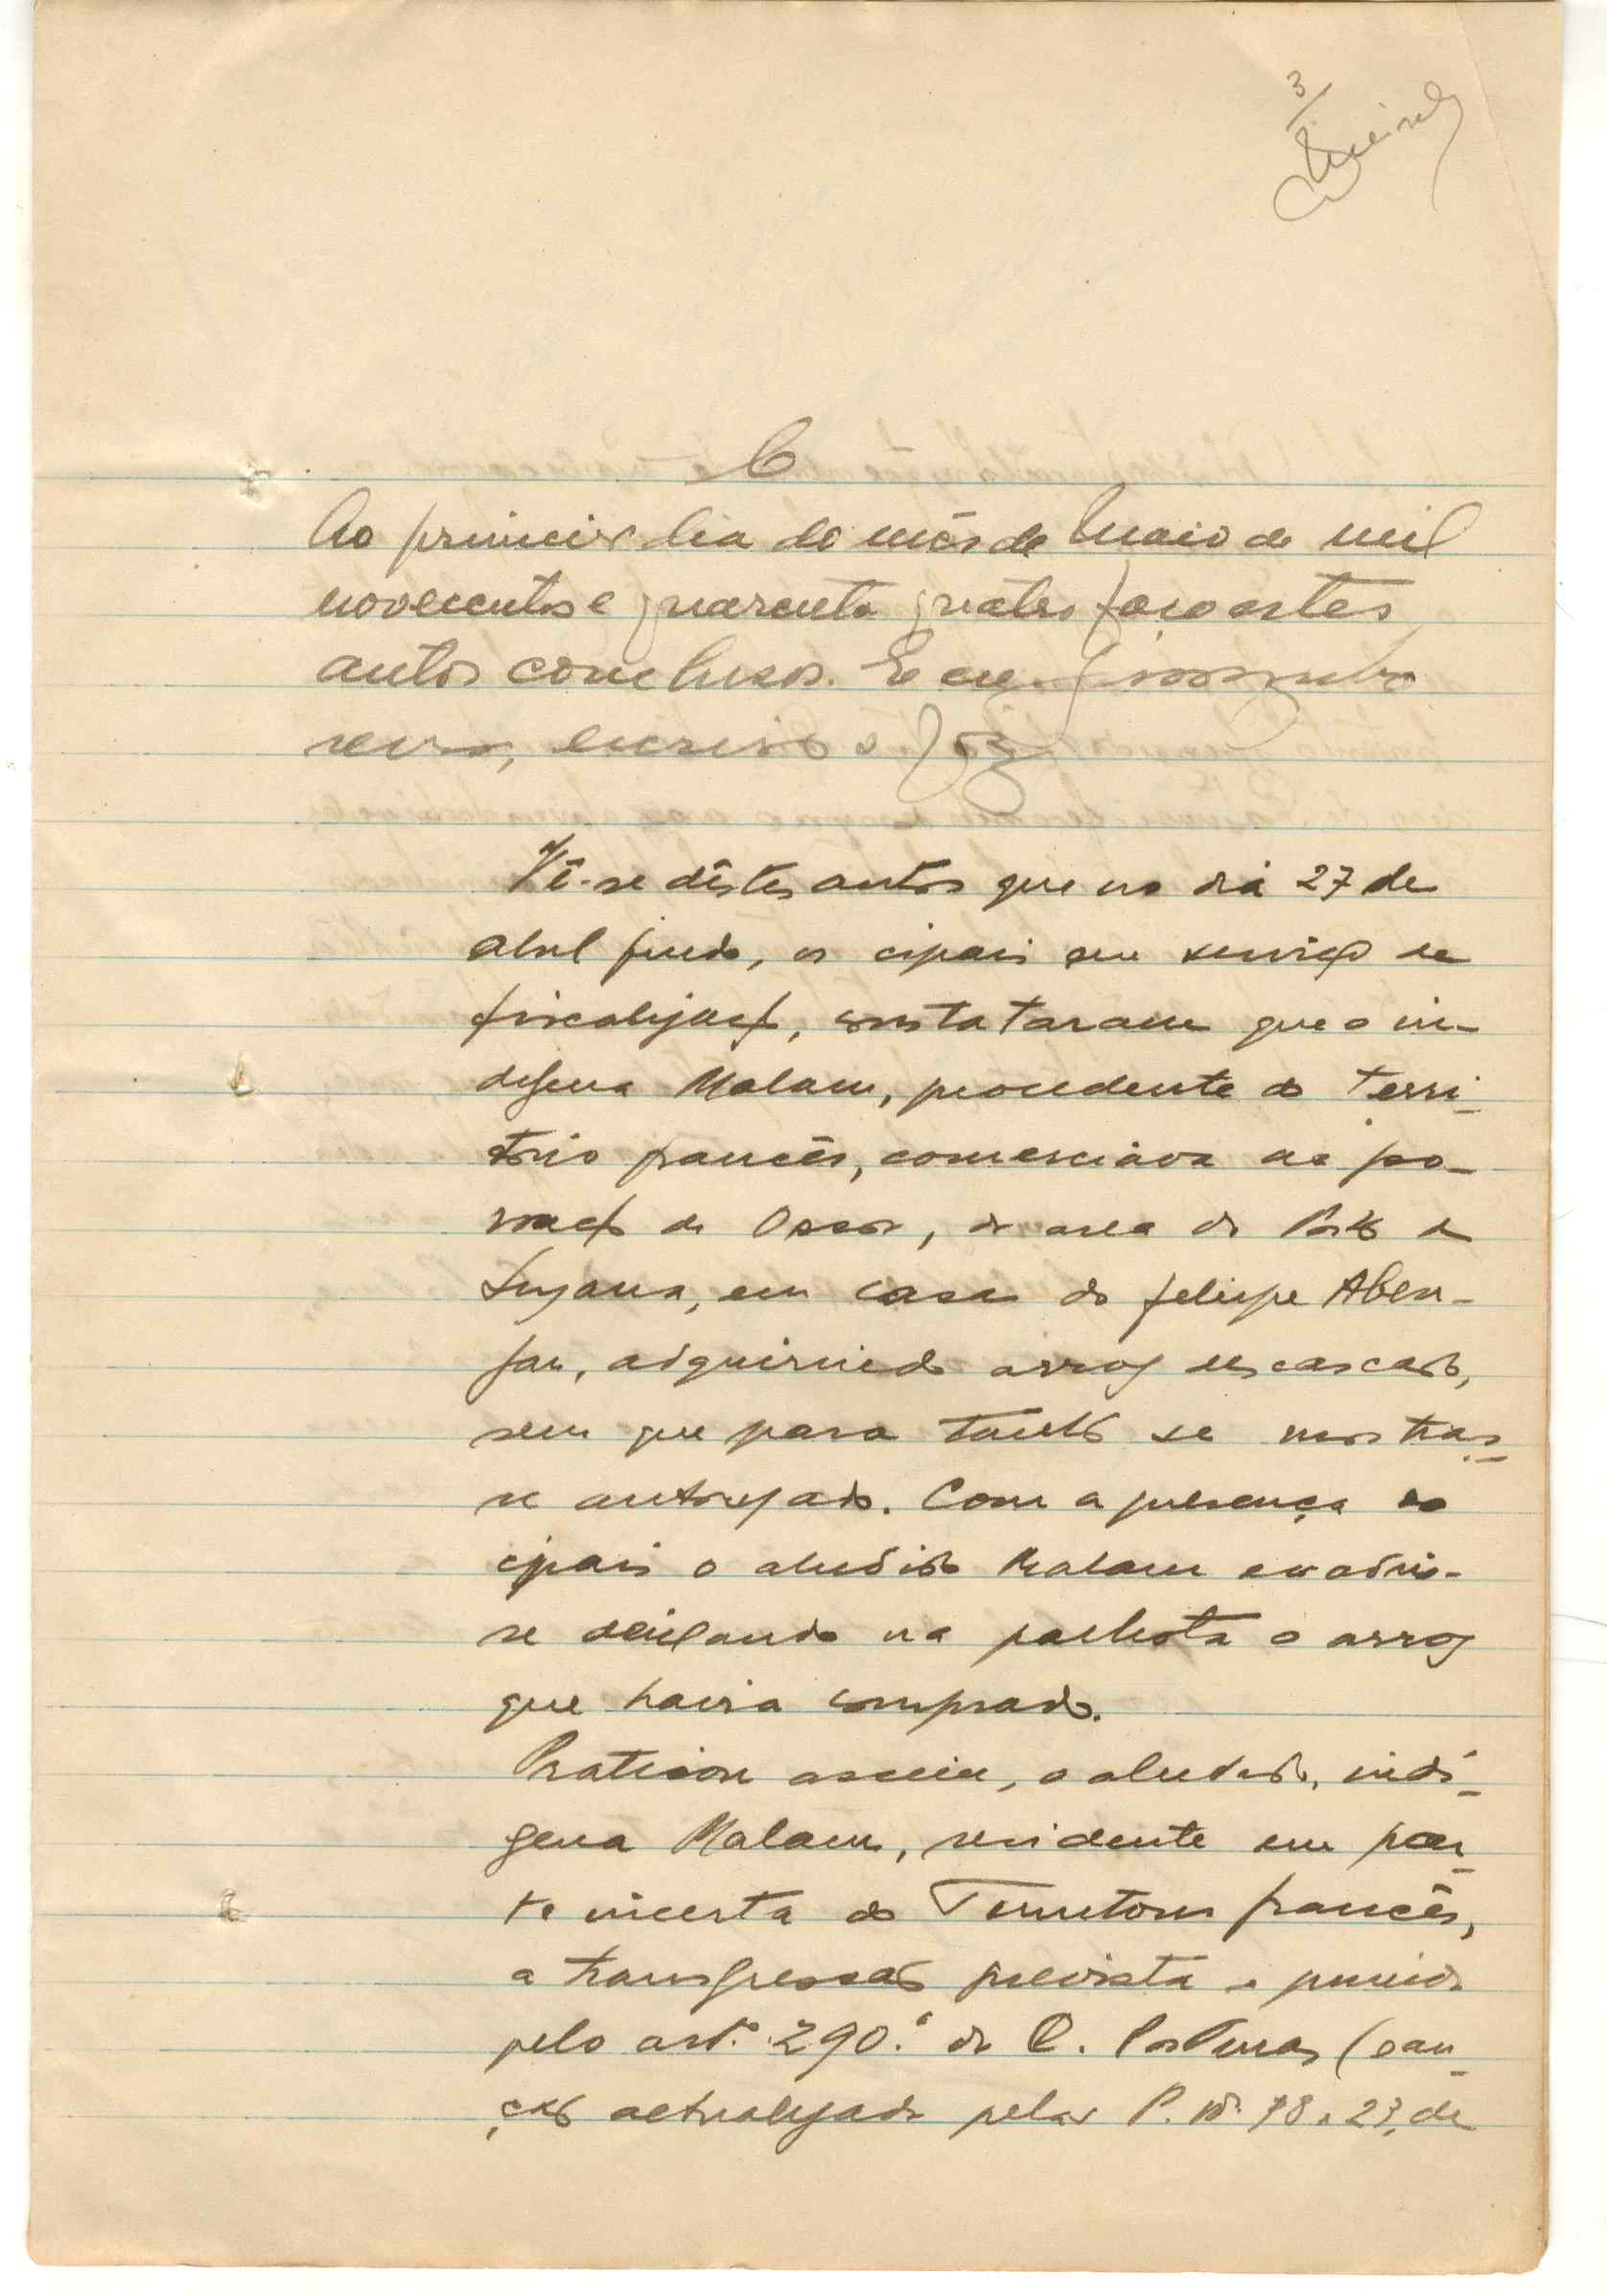 3
C
Ao primeiro dia do mês de Maio de mil
novecentos e quarenta quatro faço estes
autos conclusos. E eu,
escrivão o fiz
Vê-se dêstes autos que no dia 27 de
abril findo, os cipais em serviço de
fiscalização, constataram que o in-
dígena Malam, procedente do Terri-
tório francês, comerciava na po-
voação de Ossor, da area do Posto de
Suzana, em casa do felipe Aben-
fan, adquirindo arroz descascado,
sem que para tanto se mostras-
se autorizado. Com a presença dos
cipais o aludido Malam evadiu-
se deixando na palhota o arroz
que havia comprado.
Praticou assim, o aludido, indí-
gena Malam, residente em par-
te incerta do Território francês,
a transgressão prevista e punida
pelo artº. 290.º do C. Posturas (san-
ção actualizada pelas P. nº. 78 e 27, de